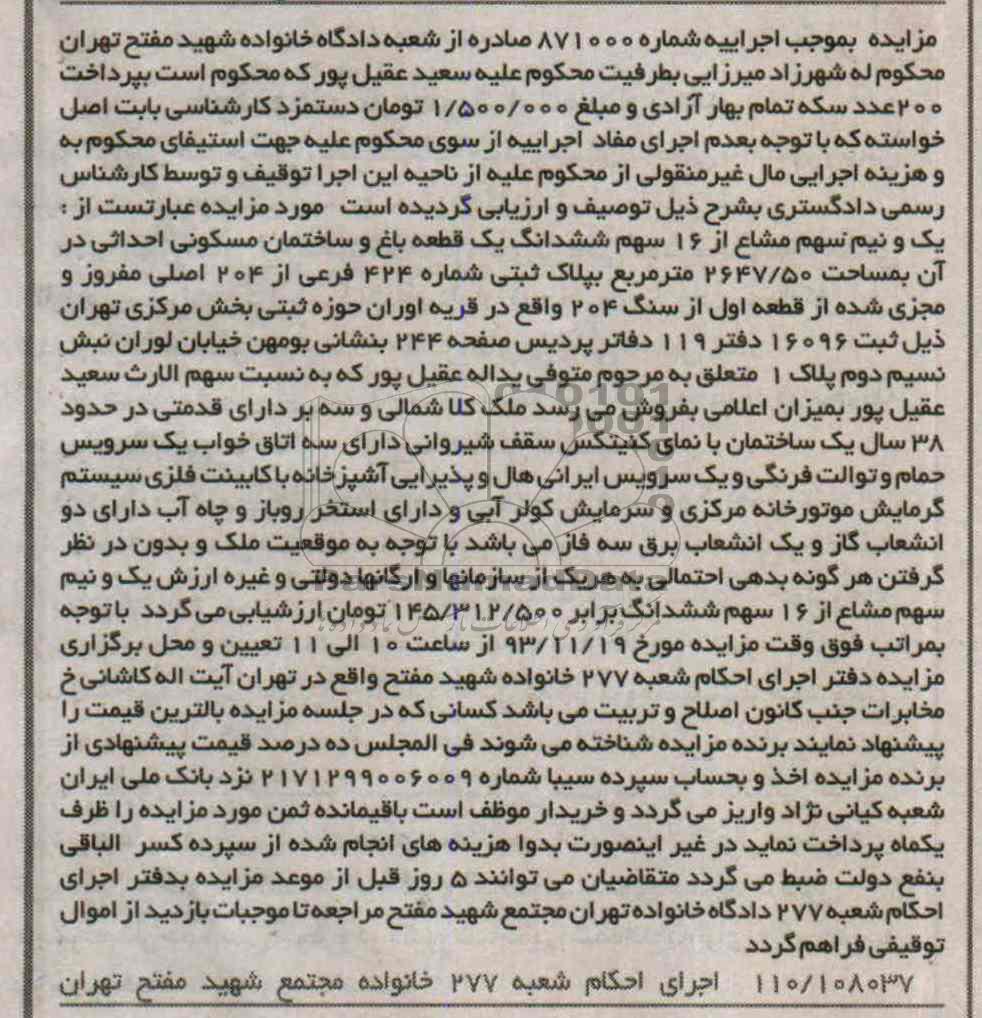 مزایده بموجب اجراییه شماره ۸۷۱۰۰۰ صادره از شعبه دادگاه خانواده شهید مفتح تهران
محکوم له شهرزاد میرزایی بطرفیت محکوم علیه سعید عقیل پور که محکوم است بپرداخت
۲۰۰عدد سکه تمام بهار آزادی و مبلغ ۱/۵۰۰/۰۰۰ تومان دستمزد کارشناسی بابت اصل
خواسته که با توجه بعدم اجرای مفاد اجراییه از سوی محکوم علیه جهت استیفای محکوم به
و هزینه اجرایی مال غیرمنقولی از محکوم علیه از ناحیه این اجرا توقیف و توسط کارشناس
رسمی دادگستری بشرح ذیل توصیف و ارزیابی گردیده است مورد مزایده عبارتست از :
یک و نیم سهم مشاع از ۱۶ سهم ششدانگ یک قطعه باغ و ساختمان مسکونی احداثی در
آن بمساحت ۲۶۴۷/۵۰ مترمربع بپلاک ثبتی شماره ۴۲۴ فرعی از ۲۰۴ اصلی مفروز و
مجزی شده از قطعه اول از سنگ ۲۰۴ واقع در قریه اوران حوزه ثبتی بخش مرکزی تهران
ذیل ثبت ۱۶۰۹۶ دفتر ۱۱۹ دفاتر پردیس صفحه ۲۴۴ بنشانی بومهن خیابان لوران نبش
نسیم دوم پلاک ۱ متعلق به مرحوم متوفی یداله عقیل پور که به نسبت سهم الارث سعید
عقیل پور بمیزان اعلامی بفروش می رسد ملک کلا شمالی و سه بر دارای قدمتی در حدود
۳۸ سال یک ساختمان با نمای کنیتکس سقف شیروانی دارای سه اتاق خواب یک سرویس
حمام و توالت فرنگی و یک سرویس ایرانی هال و پذیرایی آشپزخانه با کابینت فلزی سیستم
گرمایش موتورخانه مرکزی و سرمایش کولر آبی و دارای استخر روباز و چاه آب دارای دو
انشعاب گاز و یک انشعاب برق سه فاز می باشد با توجه به موقعیت ملک و بدون در نظر
گرفتن هر گونه بدهی احتمالی به هریک از سازمانها و ارگانها دولتی و غیره ارزش یک و نیم
سهم مشاع از ۱۶ سهم ششدانگ برابر ۱۴۵/۳۱۲/۵۰۰ تومان ارزشیابی می گردد با توجه
بمراتب فوق وقت مزایده مورخ ۹۳/۱۱/۱۹ از ساعت ۱۰ الی ۱۱ تعیین و محل برگزاری
مزایده دفتر اجرای احکام شعبه ۲۷۷ خانواده شهید مفتح واقع در تهران آیت اله کاشانی خ
مخابرات جنب کانون اصلاح و تربیت می باشد کسانی که در جلسه مزایده بالترین قیمت را
پیشنهاد نمایند برنده مزایده شناخته می شوند فی المجلس ده درصد قیمت پیشنهادی از
برنده مزایده اخذ و بحساب سپرده سیبا شماره ۲۱۷۱۲۹۹۰۰۶۰۰۹ نزد بانک ملی ایران
شعبه کیانی نژاد واریز می گردد و خریدار موظف است باقیمانده ثمن مورد مزایده را ظرف
یکماه پرداخت نماید در غیر اینصورت بدوا هزینه های انجام شده از سپرده کسر الباقی
بنفع دولت ضبط می گردد متقاضیان می توانند ۵ روز قبل از موعد مزایده بدفتر اجرای
احکام شعبه ۲۷۷ دادگاه خانواده تهران مجتمع شهید مفتح مراجعه تا موجبات بازدید از اموال
توقیفی فراهم گردد
۱۱۰/۱۰۸۰۳۷ اجرای احکام شعبه ۲۷۷ خانواده مجتمع شهید مفتح تهران